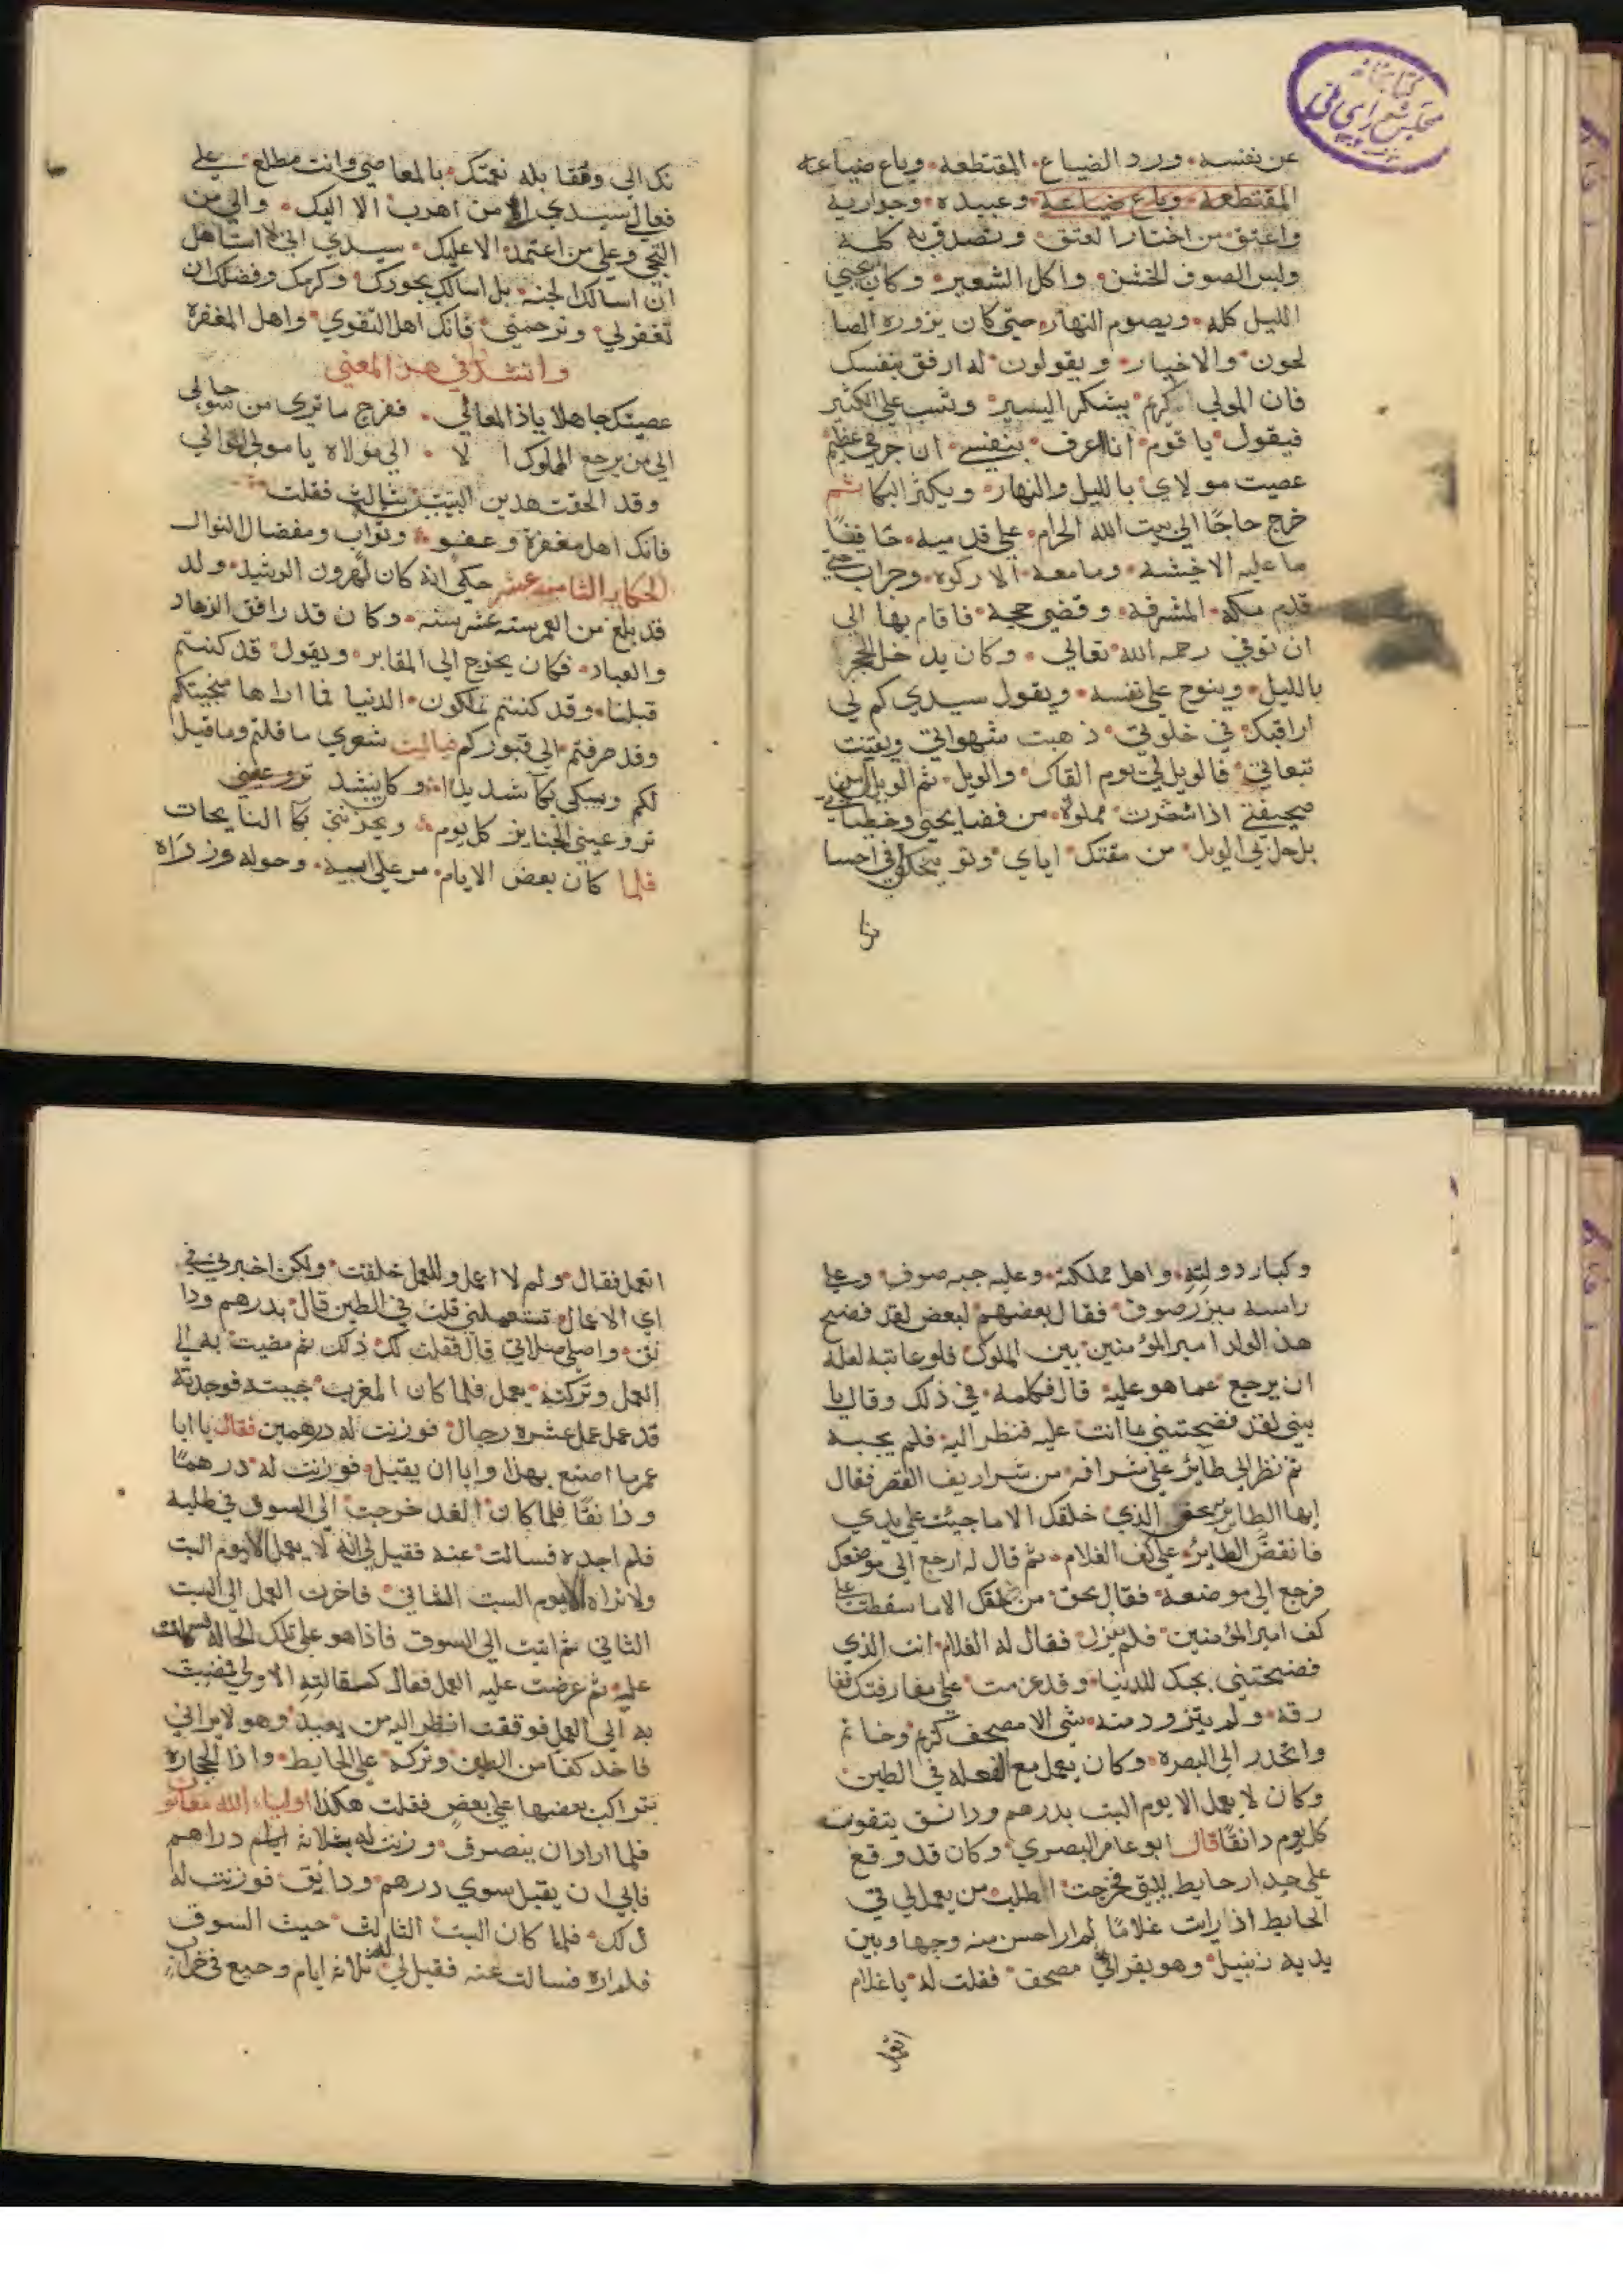 كتابخانه
مجلس شورای ملی
عن نفسه ورد الضياع المقتطعه وباع ضياعه
المقتطعة وباع ضياعه وعبيده وجواريه
واعتق من اختار العتق وتصدق به كله
ولبس الصوف الخشن واكل الشعير وكان يحيي
الليل كله ويصوم النهار حتى كان يزوره الصا
لحون والاخيار ويقولون له ارفق بنفسك
فان المولي كريم يشكر اليسير ويثيب علي الكثير
فيقول يا قوم انا اعرف بنفسي ان جرمي عظيم
عصيت مولاي بالليل والنهار ويكثر البكا ثم
خرج حاجًا الي بيت الله الحرام علي قدميه حافيًا
ما عليه الا خيشة وما معه الا ركوه وجراب حتي
قدم مكه المشرفة وقضي حجه فاقام بها الي
ان توفي رحمه الله تعالي وكان يدخل الحجر
بالليل وينوح علي نفسه ويقول سيدي كم لي
اراقبك في خلوتي ذهبت شهواتي وبقيت
تبعاتي فالويل لي يوم القاك والويل ثم الويل لي من
صحيفتي اذا نشرت مملوة من فضايحي وخطياتي
بل حل بي الويل من مقتك اياي وتوبيخك لي في احسا
نك الي ومقابله نعمتك بالمعاصي وانت مطلع علي
فعالي سيدي الي من اهرب الا اليك والي من
التجي وعلي من اعتمد الا عليك سيدي اني لا استاهل
ان اسالك الجنه بل اسالك بجودك وكرمك وفضلك ان
تغفر لي وترحمني فانك اهل التقوي واهل المغفرة
وانشد في هذا المعني
عصيتك جاهلا ياذا المعالي ففرج ما تري من سو حالي
الي من يرجع المملوك الا الي مولاه يا مولي الموالي
وقد الحقت هدين البيتين بثالث فقلت
فانك اهل مغفرة وعفو وتواب ومفضال النوال
الحكايه الثامنه عشر حكي انه كان لهرون الرشيد ولد
قد بلغ من العمر سته عشر سنه وكان قد رافق الزهاد
والعباد فكان يخرج الي المقابر ويقول قد كنتم
قبلنا وقد كنتم تملكون الدنيا فما اراها منجيتكم
وقد صرفتم الي قبوركم فياليت شعري ما قلتم وما قيل
لكم ويبكي بكآ شديدا وكان ينشد تروعيني
تروعيني الجنايز كل يوم ويحزنني بكا النايحات
فلما كان بعض الايام مر علي ابيه وحوله وزراه
وكبار دولته واهل مملكته وعليه جبه صوف وعلي
راسه ميزر صوف فقال بعضهم لبعض لقد فضح
هذا الولد امير المؤمنين بين الملوك فلو عاتبه لعله
ان يرجع عما هو عليه قال فكلمه في ذلك وقال يا
بني لقد فضحتني بما انت عليه فنظر اليه فلم يجبه
ثم نظر الي طآئر علي شرافه من شراريف القصر فقال
ايها الطاير بحق الذي خلقك الا ما جيت علي يدي
فانقض الطاير علي كف الغلام ثم قال له ارجع الي موضعك
فرجع الي موضعه فقال بحق من خلقك الا ما سقطت علي
كف امير المؤمنين فلم ينزل فقال له الغلام انت الذي
فضحتني بحبك للدنيا وقد عزمت علي مفارقتك ففا
رقه ولم يتزود منه شي الا مصحف كريم وخاتم
وانحدر الي البصره وكان يعمل مع الفعله في الطين
وكان لا يعمل الا يوم السبت بدرهم ودانق يتقوت
كل يوم دانقًا قال ابو عامر البصري وكان قد وقع
علي جدار حايط بيتي فخرجت اطلب من يعمل لي في
الحايط اذ رايت غلامًا لم ار احسن منه وجها وبين
يديه زنبيل وهو يقرا في مصحف فقلت له يا غلام
اتعمل
اتعمل فقال ولم لا اعمل وللعمل خلقت ولكن اخبرني في
اي الاعمال تستعملني قلت في الطين قال بدرهم ودا
نق واصلي صلاتي قال فقلت لك ذلك ثم مضيت به الي
العمل وتركته يعمل فلما كان المغرب جيته فوجدته
قد عمل عمل عشره رجال فوزنت له درهمين فقال يا ابا
عمر ما اصنع بهذا وابا ان يقبل فوزنت له درهمًا
ودانقًا فلما كان الغد خرجت الي السوق في طلبه
فلم اجده فسالت عنه فقيل لي انه لا يعمل الا يوم السبت
ولا تراه الا يوم السبت الثاني فاخرت العمل الي السبت
الثاني ثم اتيت الي السوق فاذا هو علي تلك الحاله فسلمت
عليه ثم عرضت عليه العمل فقال كمقالته الاولي فمضيت
به الي العمل فوقفت انظر اليه من بعيد وهو لا يراني
فاخد كفا من الطين وتركه علي الحايط واذا الحجاره
تتراكب بعضها علي بعض فقلت هكذا اولياء الله معانون
فلما اراد ان ينصرف وزنت له بثلاثة ايام دراهم
فابي ان يقبل سوي درهم ودانق فوزنت له
ذلك فلما كان السبت الثالث جيت السوق
فلم اره فسالت عنه فقيل لي له ثلاثة ايام وجيع في خراب